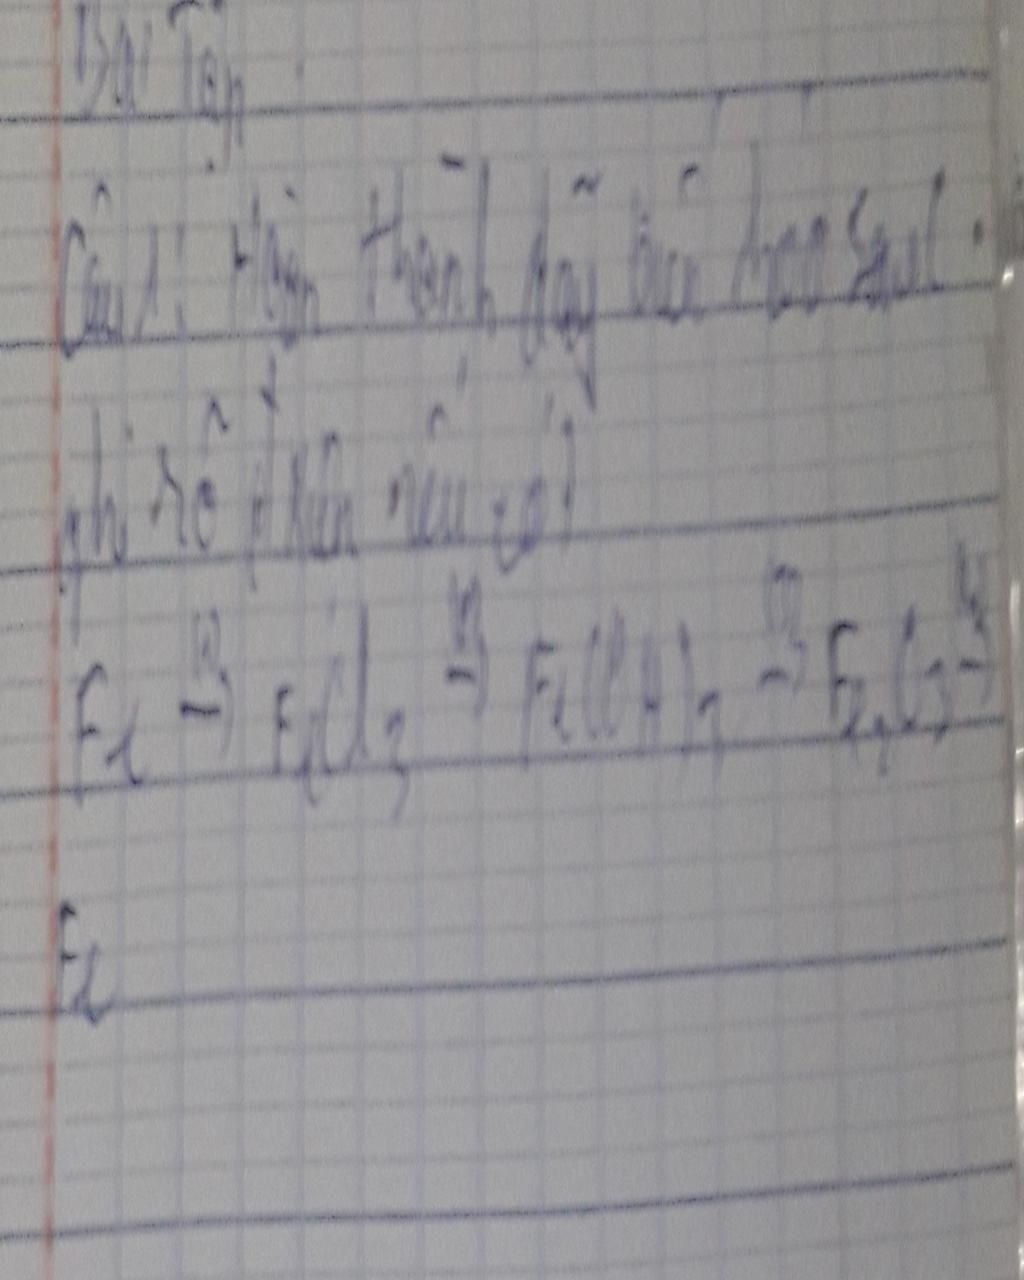 Bài Tập
Câu 1: Hoàn thành dãy biến hóa sau.
ghi rõ đ kiện nếu có)
Fe (1)→ FeCl3 (2)→ Fe(OH)3 (3)→ Fe2O3 (4)→
Fe